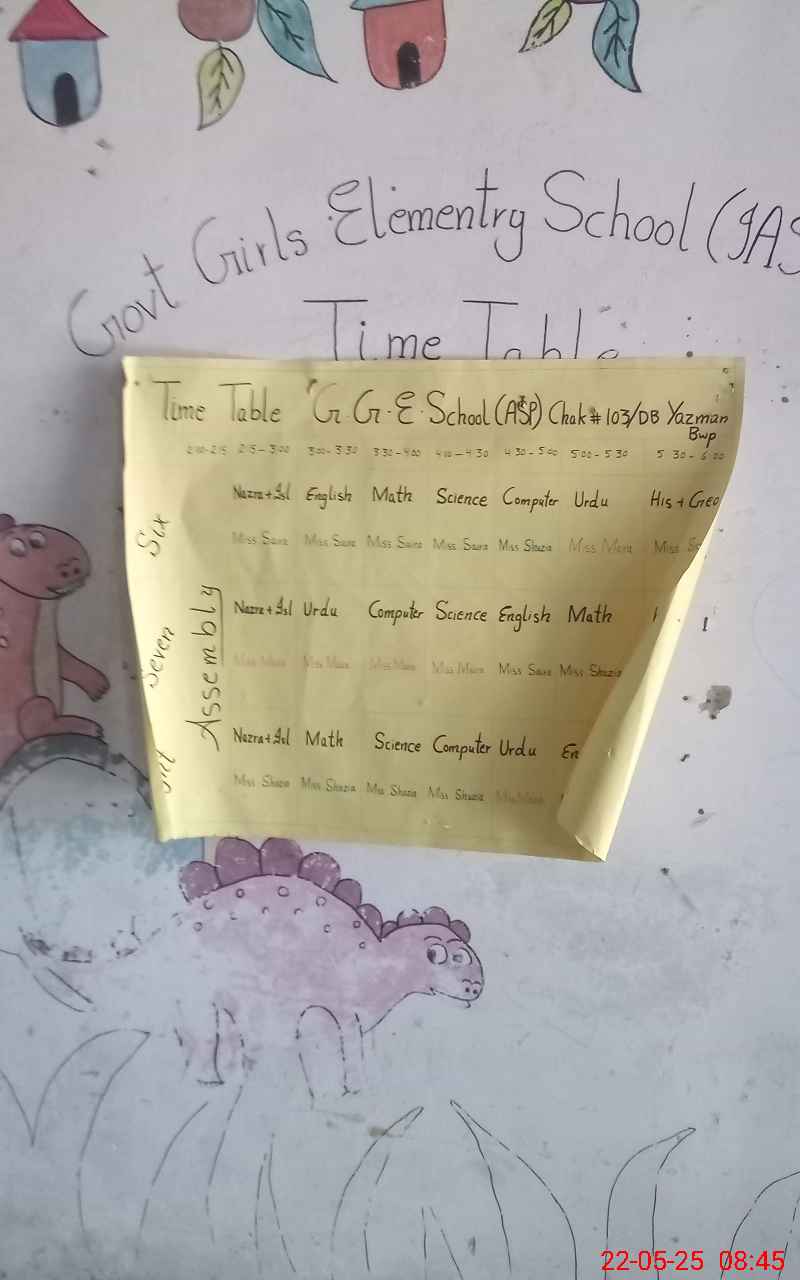 Govt Girls Elementry School (
Time Table
Time Table G.G.E.School (ASP) Chak # 103/DB Yazman
Bwp
2:00-2:15 2:15-3:00 3:00-3:30 3:30-4:00 4:00-4:30 4:30-5:00 5:00-5:30 5:30-6:00
Six Nazra+Isl English Math Science Computer Urdu His + Geo
Miss Saira Miss Saira Miss Saira Miss Saira Miss Shazia Miss Miss
Seven Assembly Nazra+Isl Urdu Computer Science English Math
Miss Miss Miss Miss Miss Saira Miss Shazia
Nazra+Isl Math Science Computer Urdu En
Miss Shazia Miss Shazia Miss Shazia Miss Shazia Miss
22-05-25 08:45